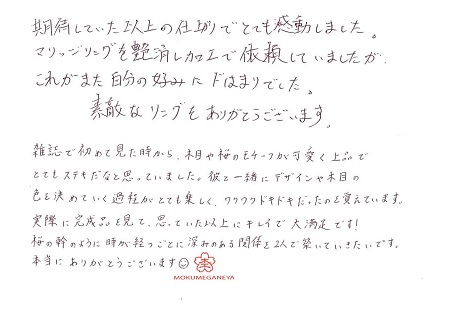 期待していた以上の仕上りでとても感動しました。
マリッジリングを艶消し加工で依頼していましたが、
これがまた自分の好みにドはまりでした。
素敵なリングをありがとうございます。
雑誌で初めて見た時から、木目や桜のモチーフが可愛く上品で
とてもステキだなと思っていました。彼と一緒にデザインや木目の
色を決めていく過程がとても楽しく、ワクワクドキドキだったのを覚えています。
実際に完成品を見て、思っていた以上にキレイで大満足です!
桜の幹のように時が経つごとに深みのある関係を2人で築いていきたいです。
本当にありがとうございます☺
MOKUMEGANEYA